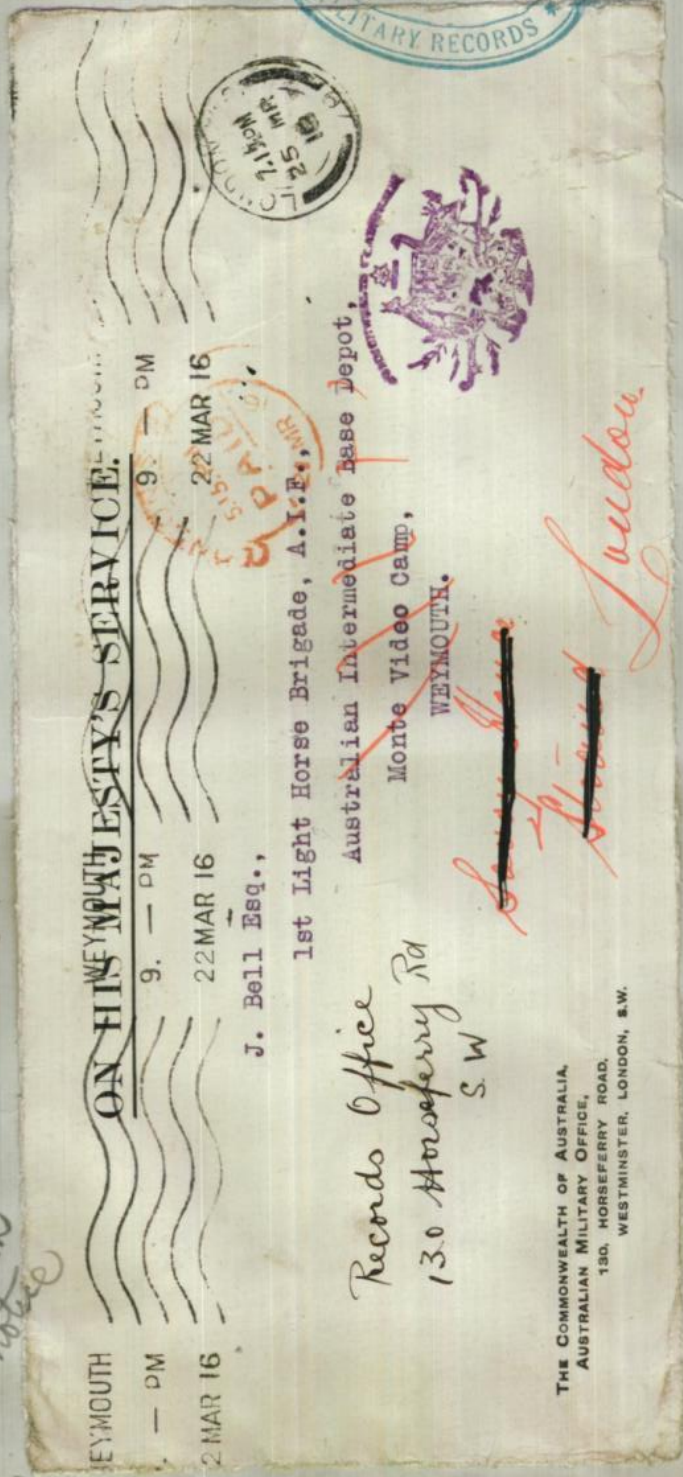 MILITARY RECORDS
WEYMOUTH
ON HIS MAJESTY'S SERVICE.
EYMOUTH
. — PM
2 MAR 16
9. — PM
22 MAR 16
9. — PM
22 MAR 16
LONDON
7.15PM
25 MR
16
PAID
J. Bell Esq.,
1st Light Horse Brigade, A.I.F.,
Australian Intermediate Base Depot,
Monte Video Camp,
WEYMOUTH.
Records Office
130 Horseferry Rd
S. W
London
THE COMMONWEALTH OF AUSTRALIA,
AUSTRALIAN MILITARY OFFICE,
130, HORSEFERRY ROAD,
WESTMINSTER, LONDON, S.W.